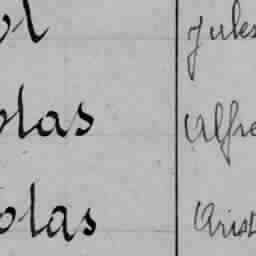 ol Jules
olas Alfre
olas Arist